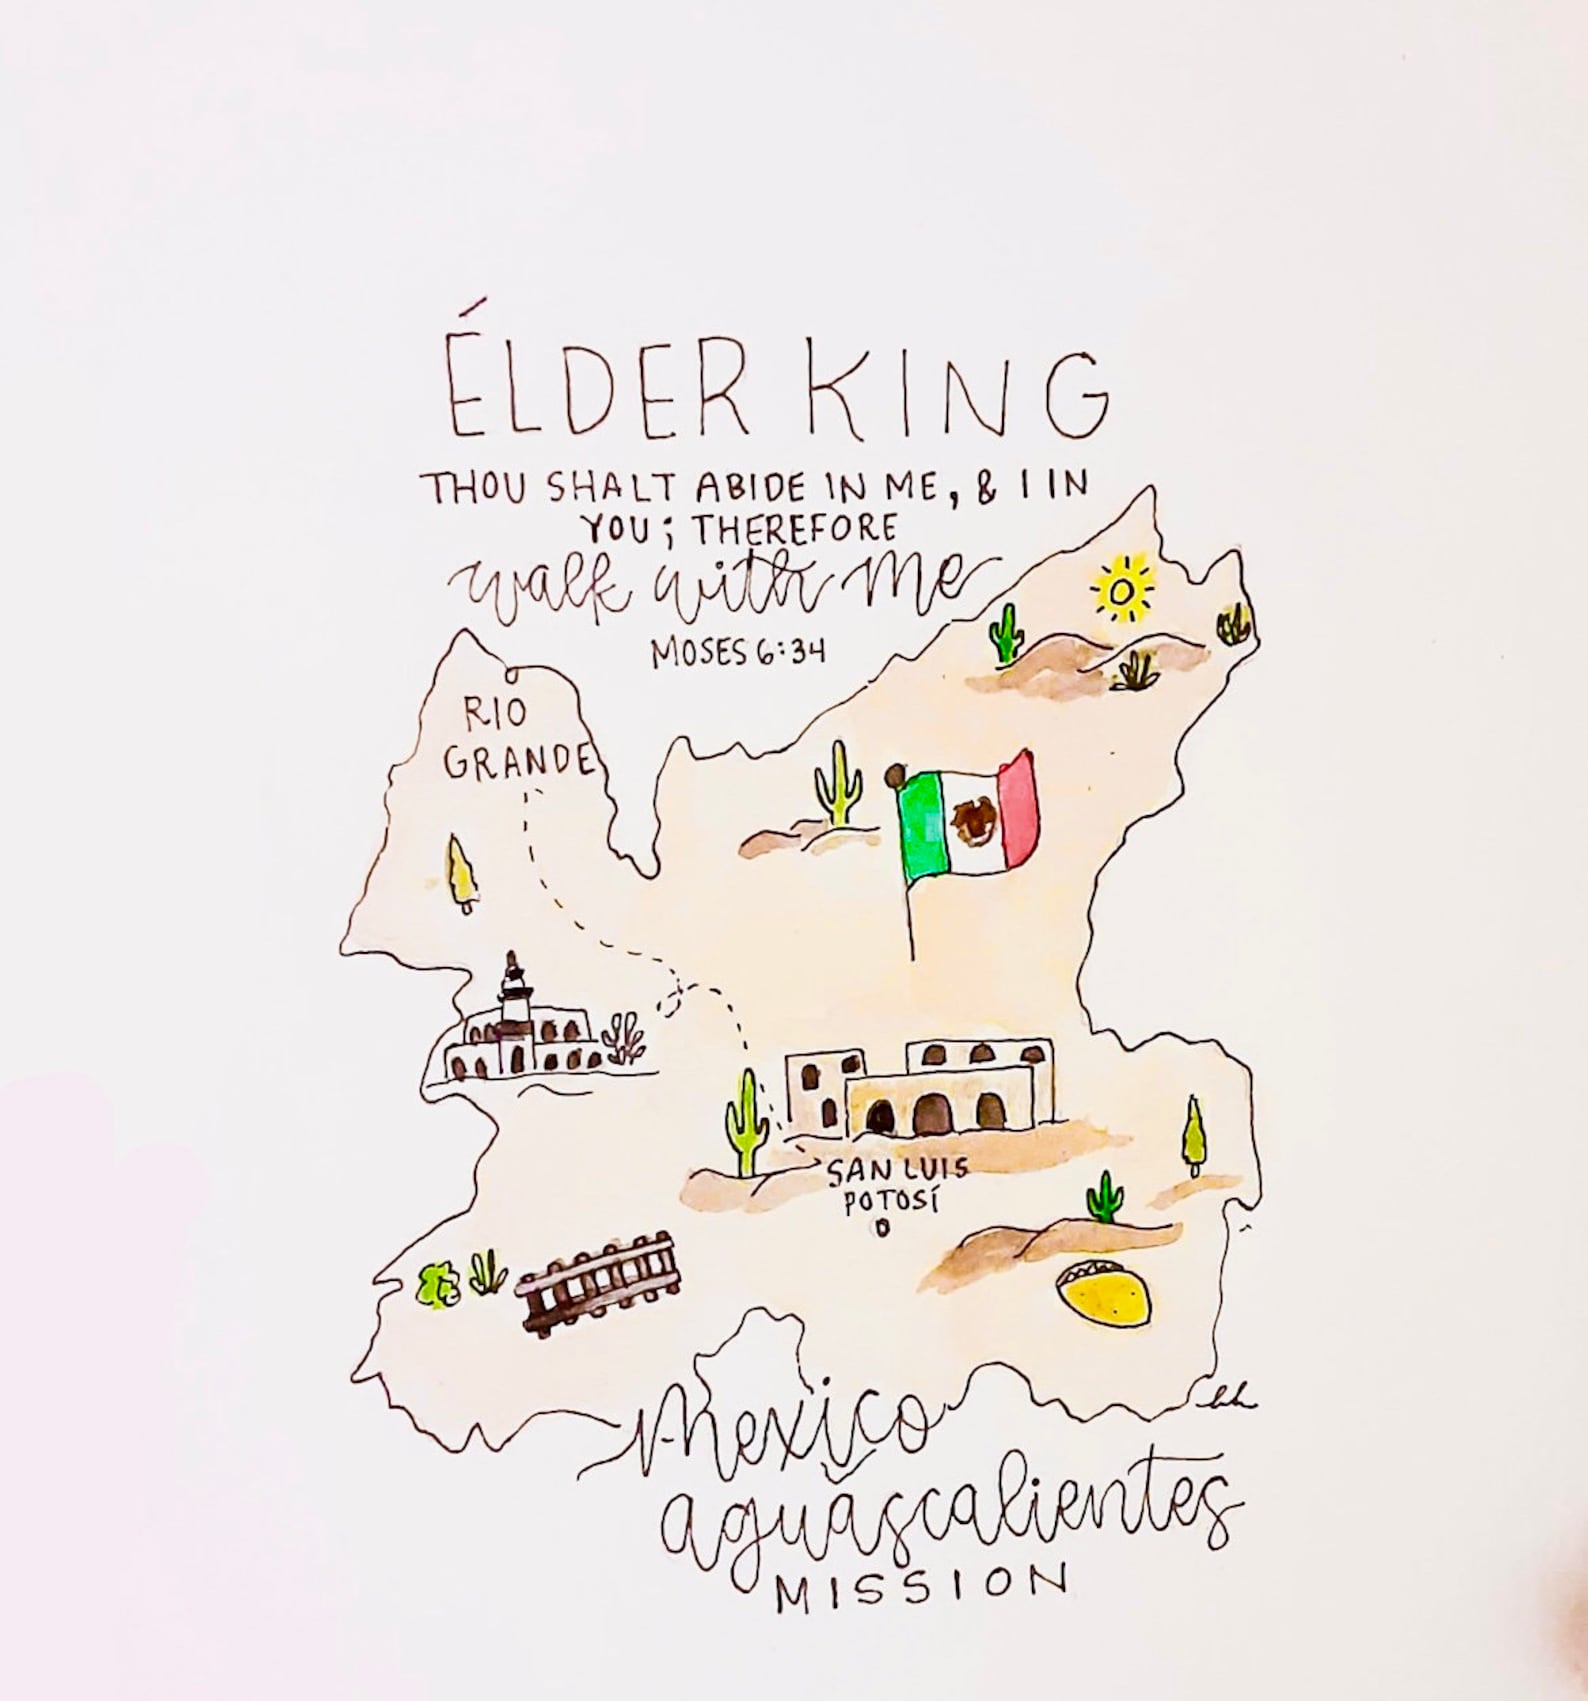 ÉLDER KING
THOU SHALT ABIDE IN ME, & I IN
YOU; THEREFORE
walk with me
MOSES 6:34
RIO
GRANDE
SAN LUIS
POTOSÍ
Mexico
aguascalientes
MISSION